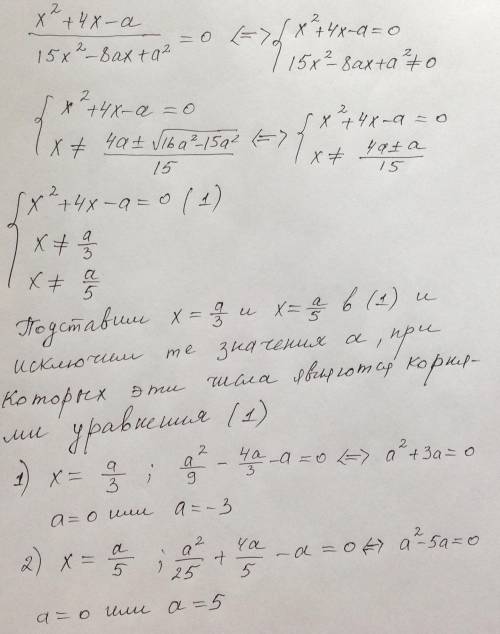 x²+4x-a / 15x²-8ax+a² = 0 <=> { x²+4x-a=0
15x²-8ax+a²≠0
{ x²+4x-a=0
x ≠ 4a±√16a²-15a² / 15 <=> { x²+4x-a=0
x ≠ 4a±a / 15
{ x²+4x-a=0 (1)
x ≠ a/3
x ≠ a/5
Подставим x = a/3 и x = a/5 в (1) и
исключим те значения a, при
которых эти числа являются корня-
ми уравнения (1)
1) x = a/3 ; a²/9 - 4a/3 - a = 0 <=> a²+3a=0
a=0 или a=-3
2) x = a/5 ; a²/25 + 4a/5 - a = 0 <=> a²-5a=0
a=0 или a=5